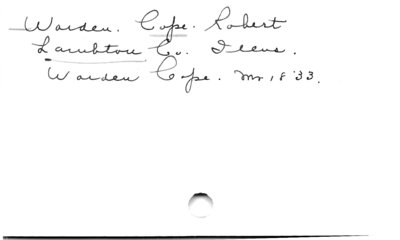 Warden. Cope. Robert
Lambton Co. Items.
Warden Cope. Mr 18 '33.